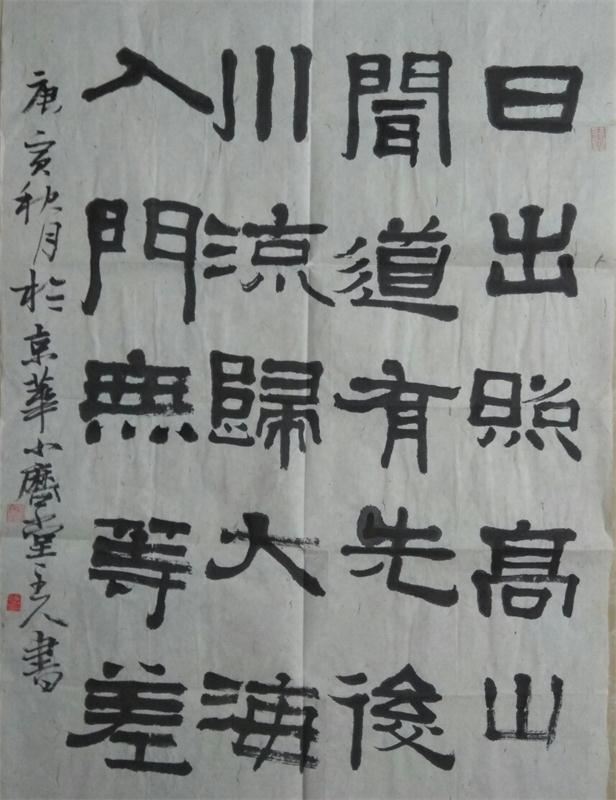 日出照高山
聞道有先後
川流歸大海
入門無等差
庚寅秋月於京華小堂主人書